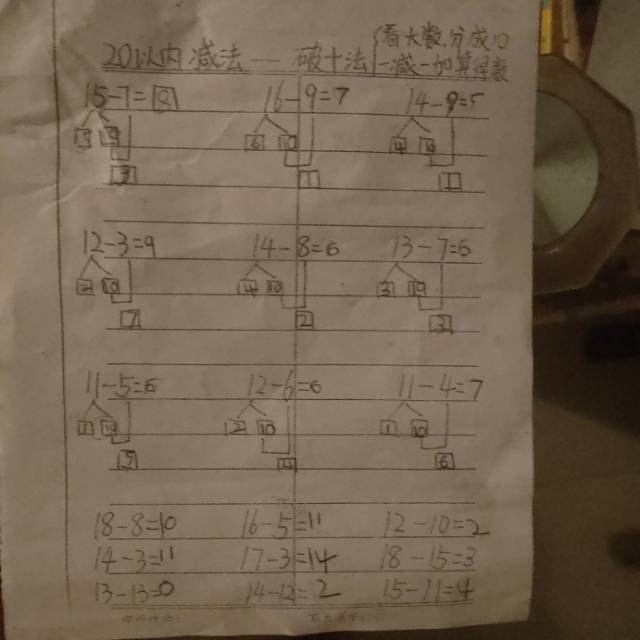 看大数,分成10
20以内减法——破十法 一减一加算得数
15-7=8 16-9=7 14-9=5
5 10 6 10 4 10
3 1 1
12-3=9 14-8=6 13-7=6
2 10 4 10 3 10
7 2 3
11-5=6 12-6=6 11-4=7
1 10 2 10 1 10
5 4 6
18-8=10 16-5=11 12-10=2
14-3=11 17-3=14 18-15=3
13-13=0 14-12=2 15-11=4